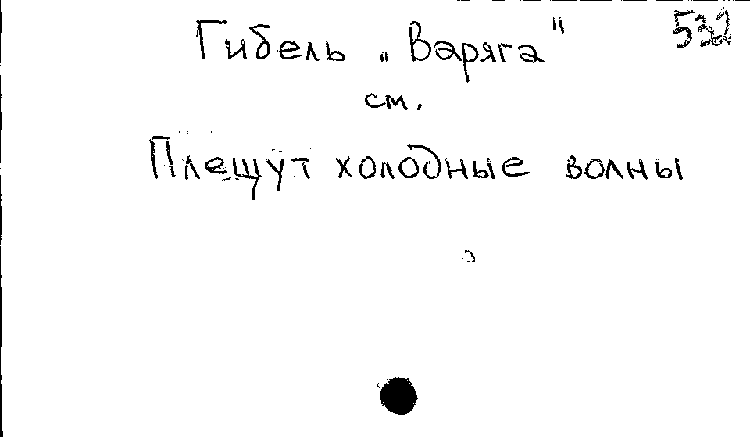 Гибель „Варяга"
532
см.
Плещут холодные волны